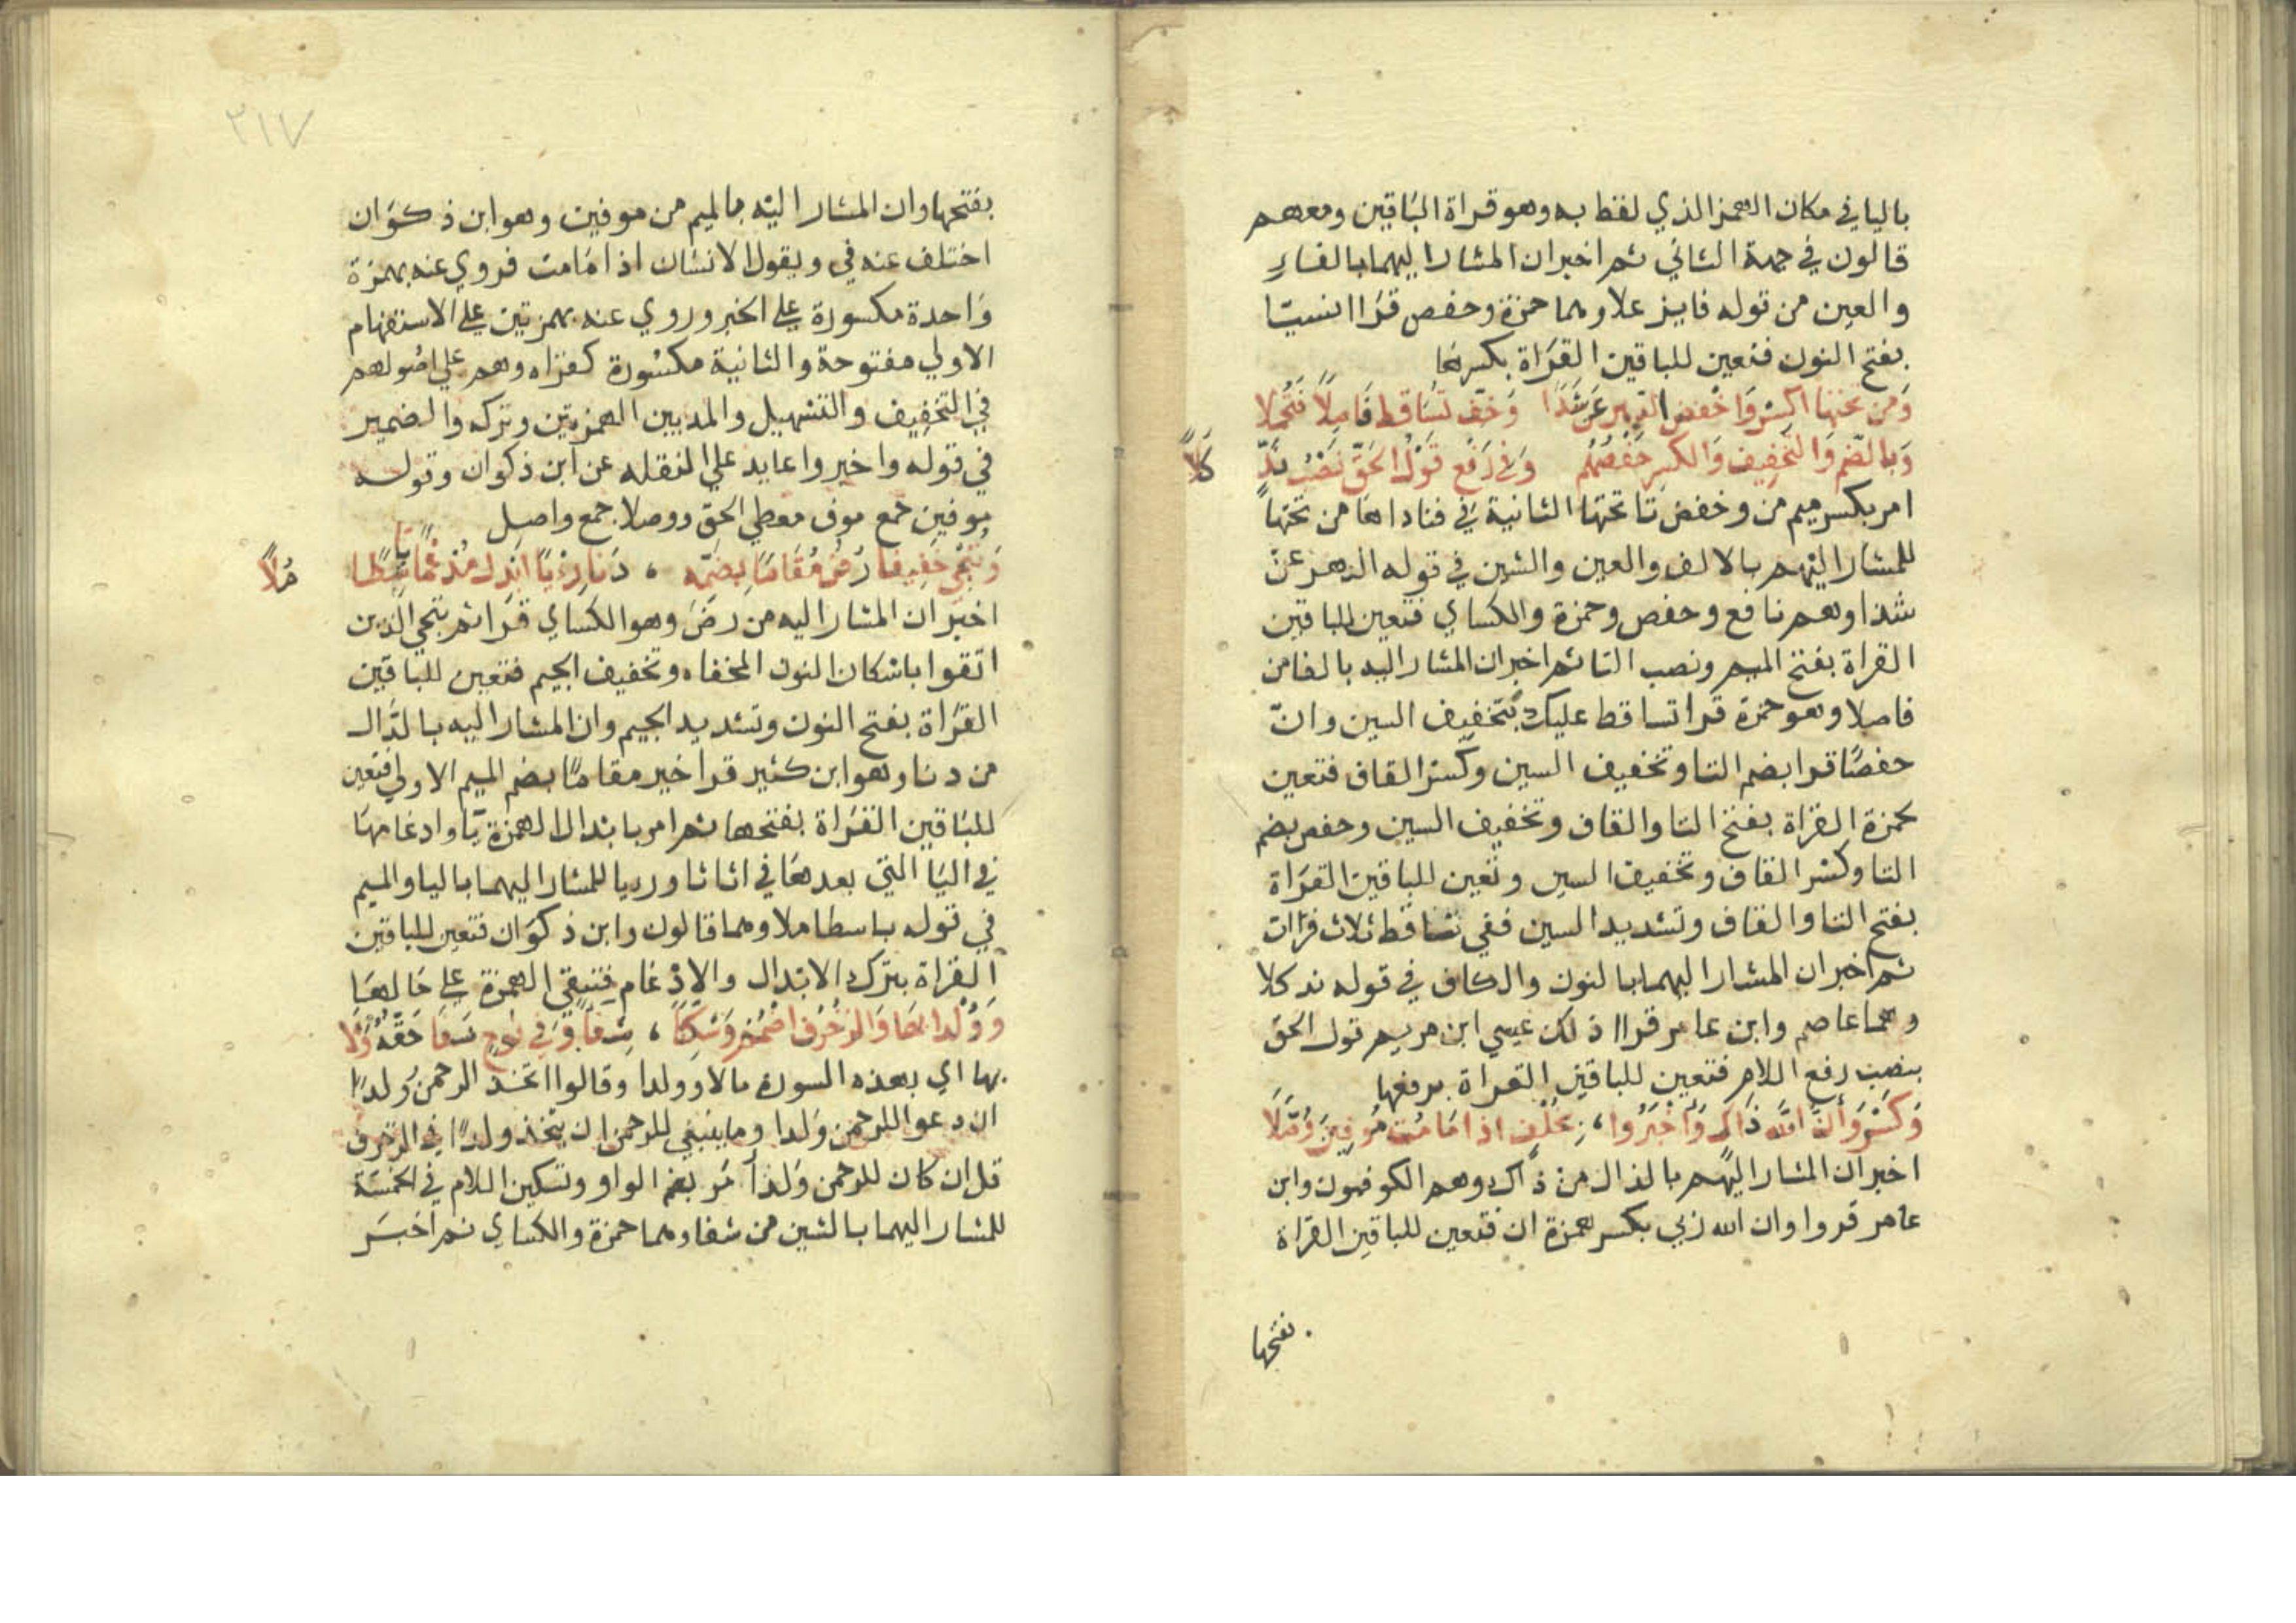 باليا في مكان الهمز الذي لفظ به وهو قراة الباقين ومعهم
قالون في جهة الثاني ثم اخبر ان المشار اليهما بالفاء
والعين من قوله فايز علا وهما حمزة وحفص قراا نسيا
بفتح النون فتعين للباقين القراة بكسرها
وَمن تحتها اكسر وَاخفض الدهر عَن شذا وَخف تساقط فَاصلاً فَتُحملا
وَبالضم وَالتخفيف وَالكسر حفصهم وَفي رَفع قول الحق نصب ندٍ
كَلاً
امر بكسر ميم من وخفض تا تحتها الثانية في فناداها من تحتها
للمشار اليهم بالالف والعين والشين في قوله الدهر عن
شذا وهم نافع وحفص وحمزة والكساي فتعين للباقين
القراة بفتح الميم ونصب التا ثم اخبر ان المشار اليه بالفا من
فاصلا وهو حمزة قرا تساقط عليك بتخفيف السين وان
حفصا قرا بضم التا وتخفيف السين وكسر القاف فتعين
لحمزة القراة بفتح التا والقاف وتخفيف السين وحفص بضم
التا وكسر القاف وتخفيف السين وتعين للباقين القراة
بفتح التا والقاف وتشديد السين ففي تساقط ثلاث قرات
ثم اخبر ان المشار اليهما بالنون والكاف في قوله ند كلا
وهما عاصم وابن عامر قراا ذلك عيسي ابن مريم قول الحق
بنصب رفع اللام فتعين للباقين القراة برفعها
وَكسر وَأن الله ذاكٍ وَأخبروا، بخلف اذا مَا مُت مُوفين وُصَّلا
اخبر ان المشار اليهم بالذال من ذاك وهم الكوفيون وابن
عامر قروا وان الله ربي بكسر همزة ان فتعين للباقين القراة
بفتحها
٣١٧
بفتحها وان المشار اليه بالميم من موفين وهو ابن ذكوان
اختلف عنه في ويقول الانسان اذا مامت فروي عنه بهمزة
واحدة مكسورة علي الخبر وروي عنه بهمزتين علي الاستفهام
الاولي مفتوحة والثانية مكسورة كقراه وهم علي اصولهم
في التخفيف والتسهيل والمد بين الهمزتين وتركه والضمير
في قوله واخبروا عايد علي المنقله عن ابن ذكوان وقوله
موفين جمع موف معطي الحق ووصلا جمع واصل
وَننجي خفيفا رُض مُقامًا بضمه ، دنا رءيًا ابدل مدغمًا باسطًا
مُلاً
اخبر ان المشار اليه من رض وهو الكساي قرا ثم ننجي الذين
اتقوا باسكان النون المخفاه وتخفيف الجيم فتعين للباقين
القراة بفتح النون وتشديد الجيم وان المشار اليه بالدال
من دنا وهو ابن كثير قرا خير مقاما بضم الميم الاولي فتعين
للباقين القراة بفتحها ثم امر بابدال الهمزة يا وادغامها
في اليا التي بعدها في اثاثا وريا للمشار اليهما بالبا والميم
في قوله باسطا ملا وهما قالون وابن ذكوان فتعين للباقين
القراة بترك الابدال والادغام فتبقي الهمزة علي حالها
وَوُلدا بها وَالزخرف اضمم وَسكنًا ، شفاً وَفي نوحٍ شفا حقه وَلا
بها اي بهذه السورة مالا وولدا وقالوا اتخذ الرحمن ولدا
ان دعوا للرحمن ولدا وما ينبغي للرحمن ان يتخذ ولدا في الزخرف
قل ان كان للرحمن ولدا امر بضم الواو وتسكين اللام في الخمسة
للمشار اليهما بالشين من شفا وهما حمزة والكساي ثم اخبر